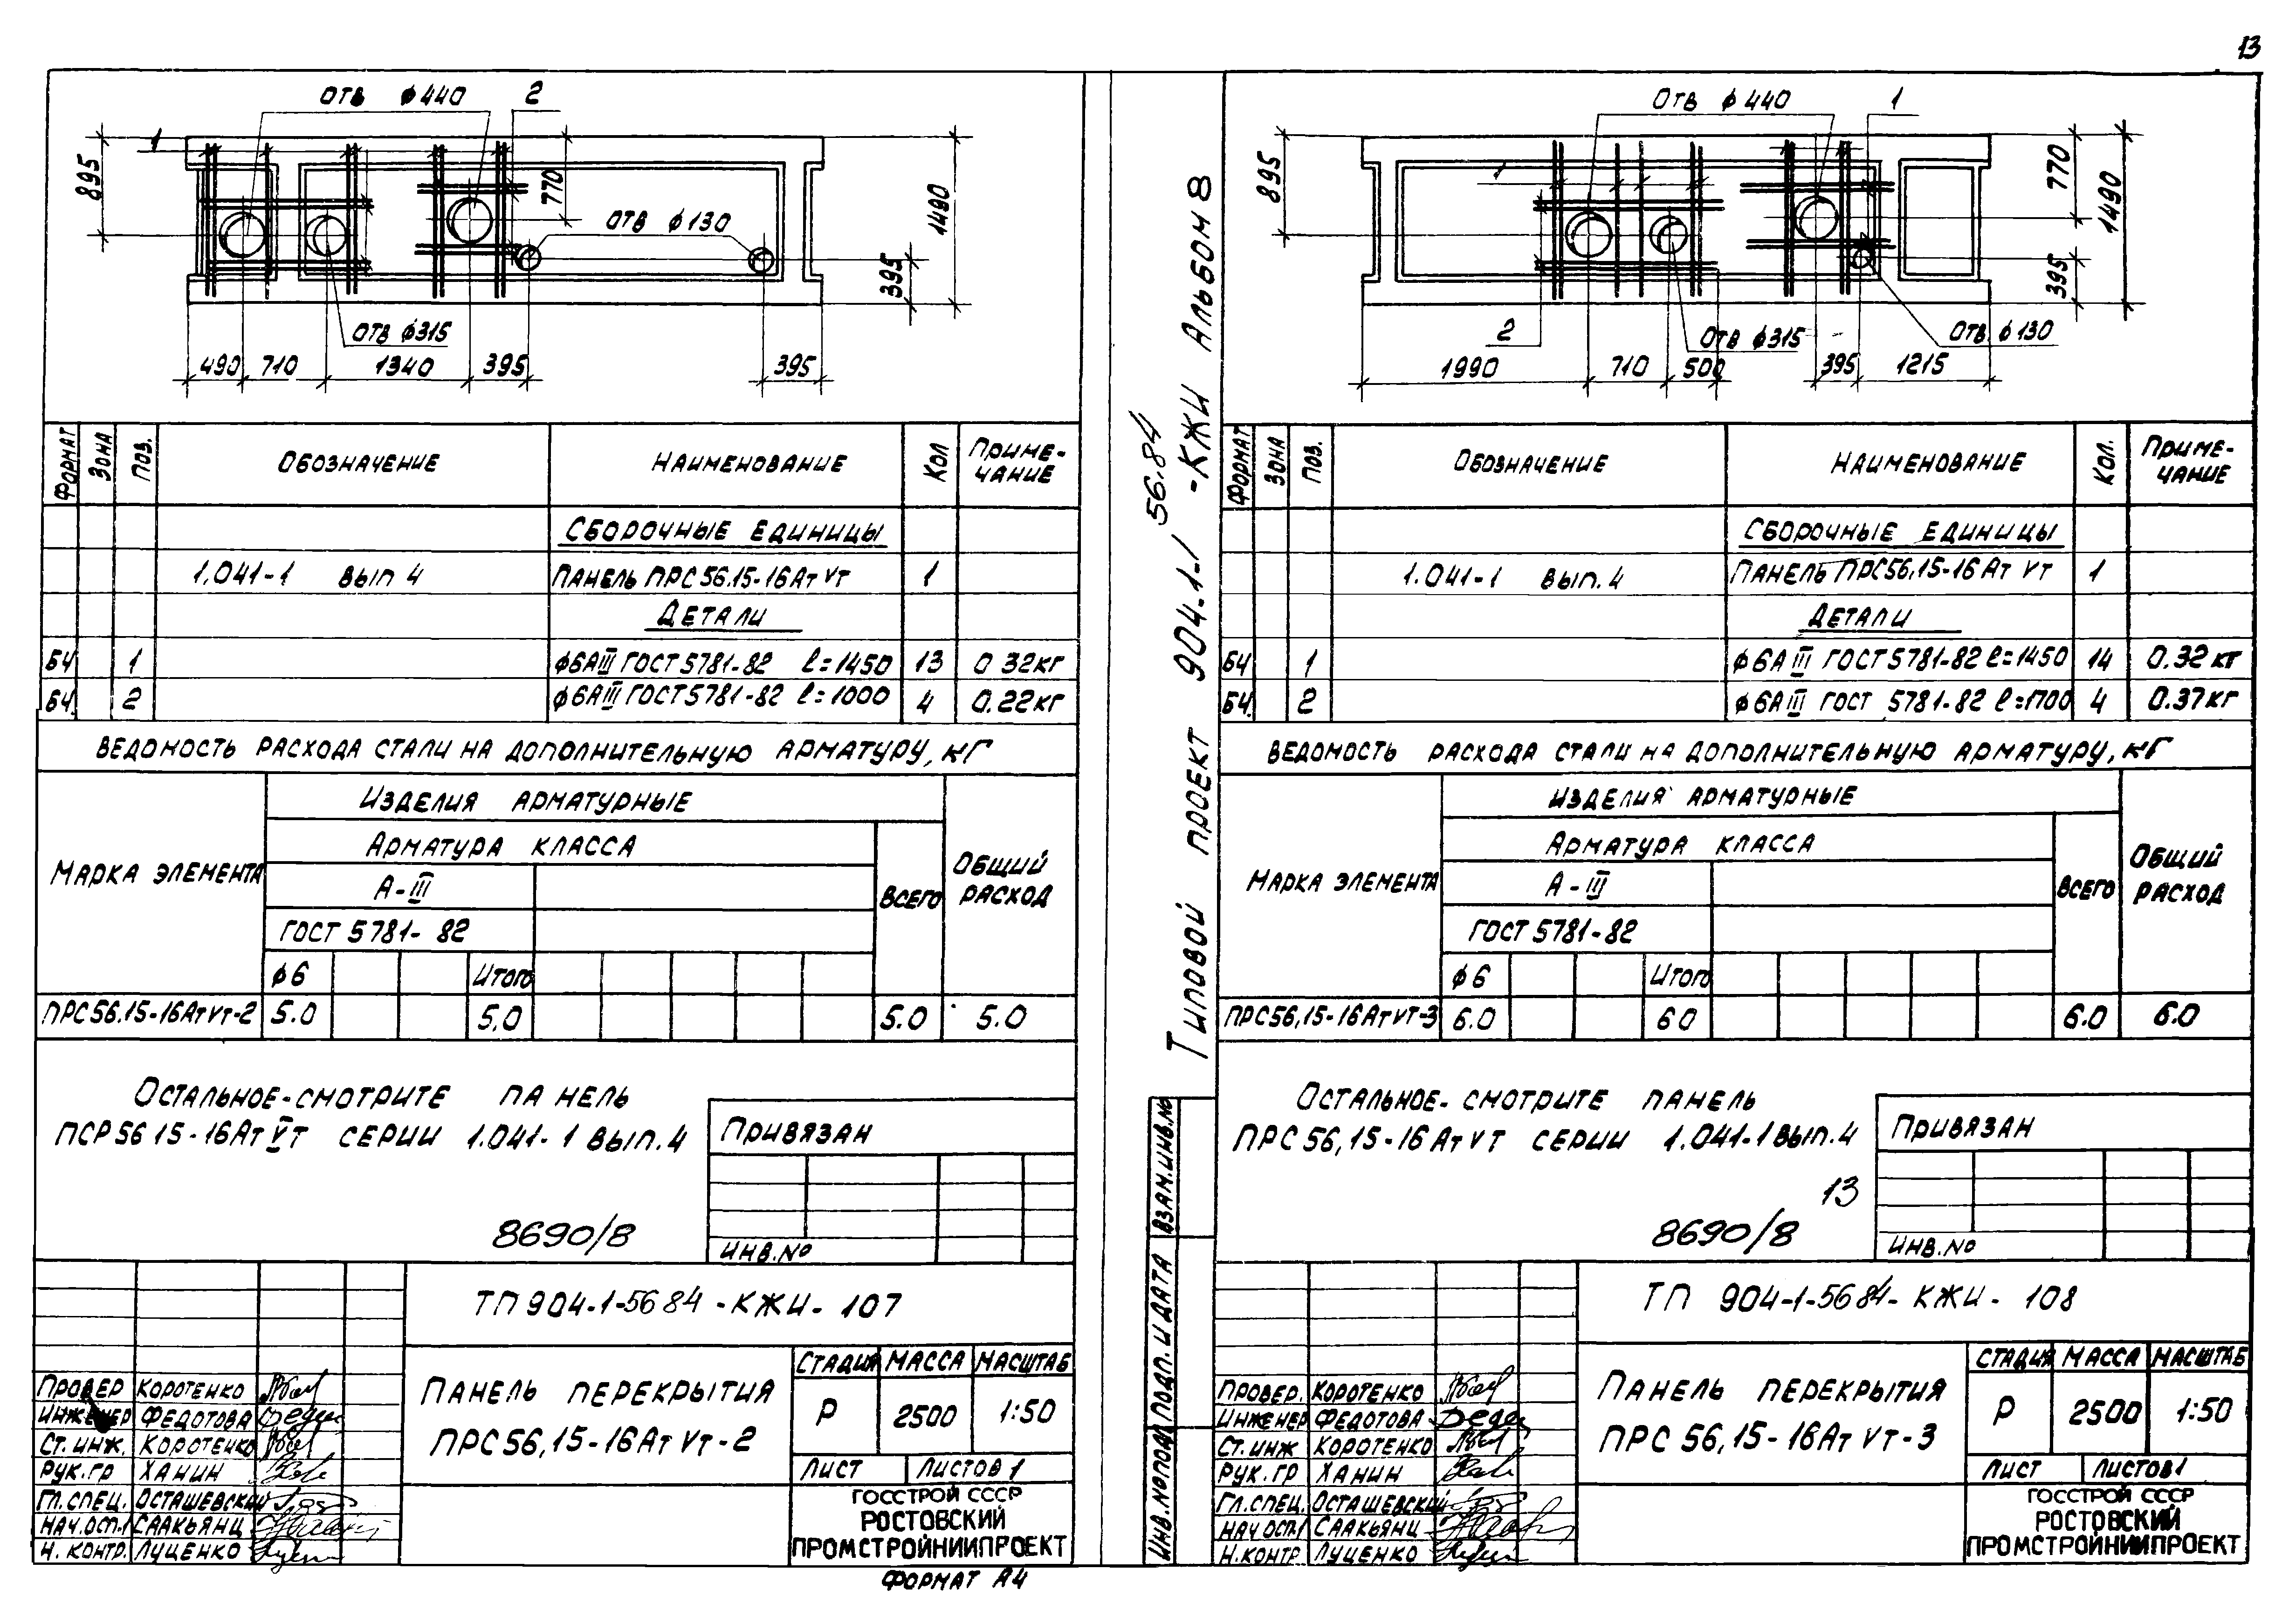 13
ОТВ ϕ440
2
1
895
770
ОТВ ϕ130
1490
395
ОТВ ϕ315
490 710 1340 395 395
ФОРМАТ ЗОНА ПОЗ. ОБОЗНАЧЕНИЕ НАИМЕНОВАНИЕ КОЛ ПРИМЕ-
ЧАНИЕ
СБОРОЧНЫЕ ЕДИНИЦЫ
1.041-1 ВЫП 4 ПАНЕЛЬ ПРС 56.15-16Ат Vт 1
ДЕТАЛИ
БЧ 1 ϕ6АIII ГОСТ 5781-82 ℓ=1450 13 0 32кг
БЧ. 2 ϕ6АIII ГОСТ 5781-82 ℓ=1000 4 0.22кг
ВЕДОМОСТЬ РАСХОДА СТАЛИ НА ДОПОЛНИТЕЛЬНУЮ АРМАТУРУ, КГ
МАРКА ЭЛЕМЕНТА ИЗДЕЛИЯ АРМАТУРНЫЕ ОБЩИЙ
РАСХОД
АРМАТУРА КЛАССА ВСЕГО
А-III
ГОСТ 5781-82
ϕ6 ИТОГО
ПРС 56.15-16АтVт-2 5.0 5.0 5.0 5.0
ОСТАЛЬНОЕ-СМОТРИТЕ ПАНЕЛЬ
ПСР 56 15-16Ат Vт СЕРИИ 1.041-1 ВЫП.4
ПРИВЯЗАН
8690/8
ИНВ.№
ТП 904-1-56 84-КЖИ-107
ПАНЕЛЬ ПЕРЕКРЫТИЯ
ПРС 56,15-16Ат Vт-2
СТАДИЯ МАССА МАСШТАБ
Р 2500 1:50
ЛИСТ ЛИСТОВ 1
ГОССТРОЙ СССР
РОСТОВСКИЙ
ПРОМСТРОЙНИИПРОЕКТ
ПРОВЕР КОРОТЕНКО
ИНЖЕНЕР ФЕДОТОВА
СТ.ИНЖ. КОРОТЕНКО
РУК.ГР ХАНИН
ГЛ.СПЕЦ. ОСТАШЕВСКИЙ
НАЧ.ОСП-1 СААКЬЯНЦ
Н. КОНТР. ЛУЦЕНКО
ФОРМАТ А4
ТИПОВОЙ ПРОЕКТ 904-1-1 -КЖИ АЛЬБОМ 8
56.84
ВЗАМ.ИНВ.№
ПОДП. И ДАТА
ИНВ.№ПОДЛ
ОТВ ϕ440
1
895
770
1490
395
2
ОТВ ϕ315
ОТВ. ϕ130
1990 710 500 395 1215
ФОРМАТ ЗОНА ПОЗ. ОБОЗНАЧЕНИЕ НАИМЕНОВАНИЕ КОЛ. ПРИМЕ-
ЧАНИЕ
СБОРОЧНЫЕ ЕДИНИЦЫ
1.041-1 ВЫП.4 ПАНЕЛЬ ПРС56,15-16 Ат Vт 1
ДЕТАЛИ
БЧ 1 ϕ6АIII ГОСТ 5781-82 ℓ=1450 14 0.32 кг
БЧ. 2 ϕ6АIII ГОСТ 5781-82 ℓ=1700 4 0.37кг
ВЕДОМОСТЬ РАСХОДА СТАЛИ НА ДОПОЛНИТЕЛЬНУЮ АРМАТУРУ, КГ
МАРКА ЭЛЕМЕНТА ИЗДЕЛИЯ АРМАТУРНЫЕ ОБЩИЙ
РАСХОД
АРМАТУРА КЛАССА ВСЕГО
А-III
ГОСТ 5781-82
ϕ6 ИТОГО
ПРС56,15-16АтVт-3 6.0 6 0 6.0 6.0
ОСТАЛЬНОЕ-СМОТРИТЕ ПАНЕЛЬ
ПРС 56,15-16 Ат Vт СЕРИИ 1.041-1 ВЫП.4
13
ПРИВЯЗАН
8690/8
ИНВ.№
ТП 904-1-56 84-КЖИ-108
ПАНЕЛЬ ПЕРЕКРЫТИЯ
ПРС 56,15-16Ат Vт-3
СТАДИЯ МАССА МАСШТАБ
Р 2500 1:50
ЛИСТ ЛИСТОВ1
ГОССТРОЙ СССР
РОСТОВСКИЙ
ПРОМСТРОЙНИИПРОЕКТ
ПРОВЕР. КОРОТЕНКО
ИНЖЕНЕР ФЕДОТОВА
СТ.ИНЖ КОРОТЕНКО
РУК.ГР ХАНИН
ГЛ.СПЕЦ. ОСТАШЕВСКИЙ
НАЧ ОСП1 СААКЬЯНЦ
Н.КОНТР. ЛУЦЕНКО